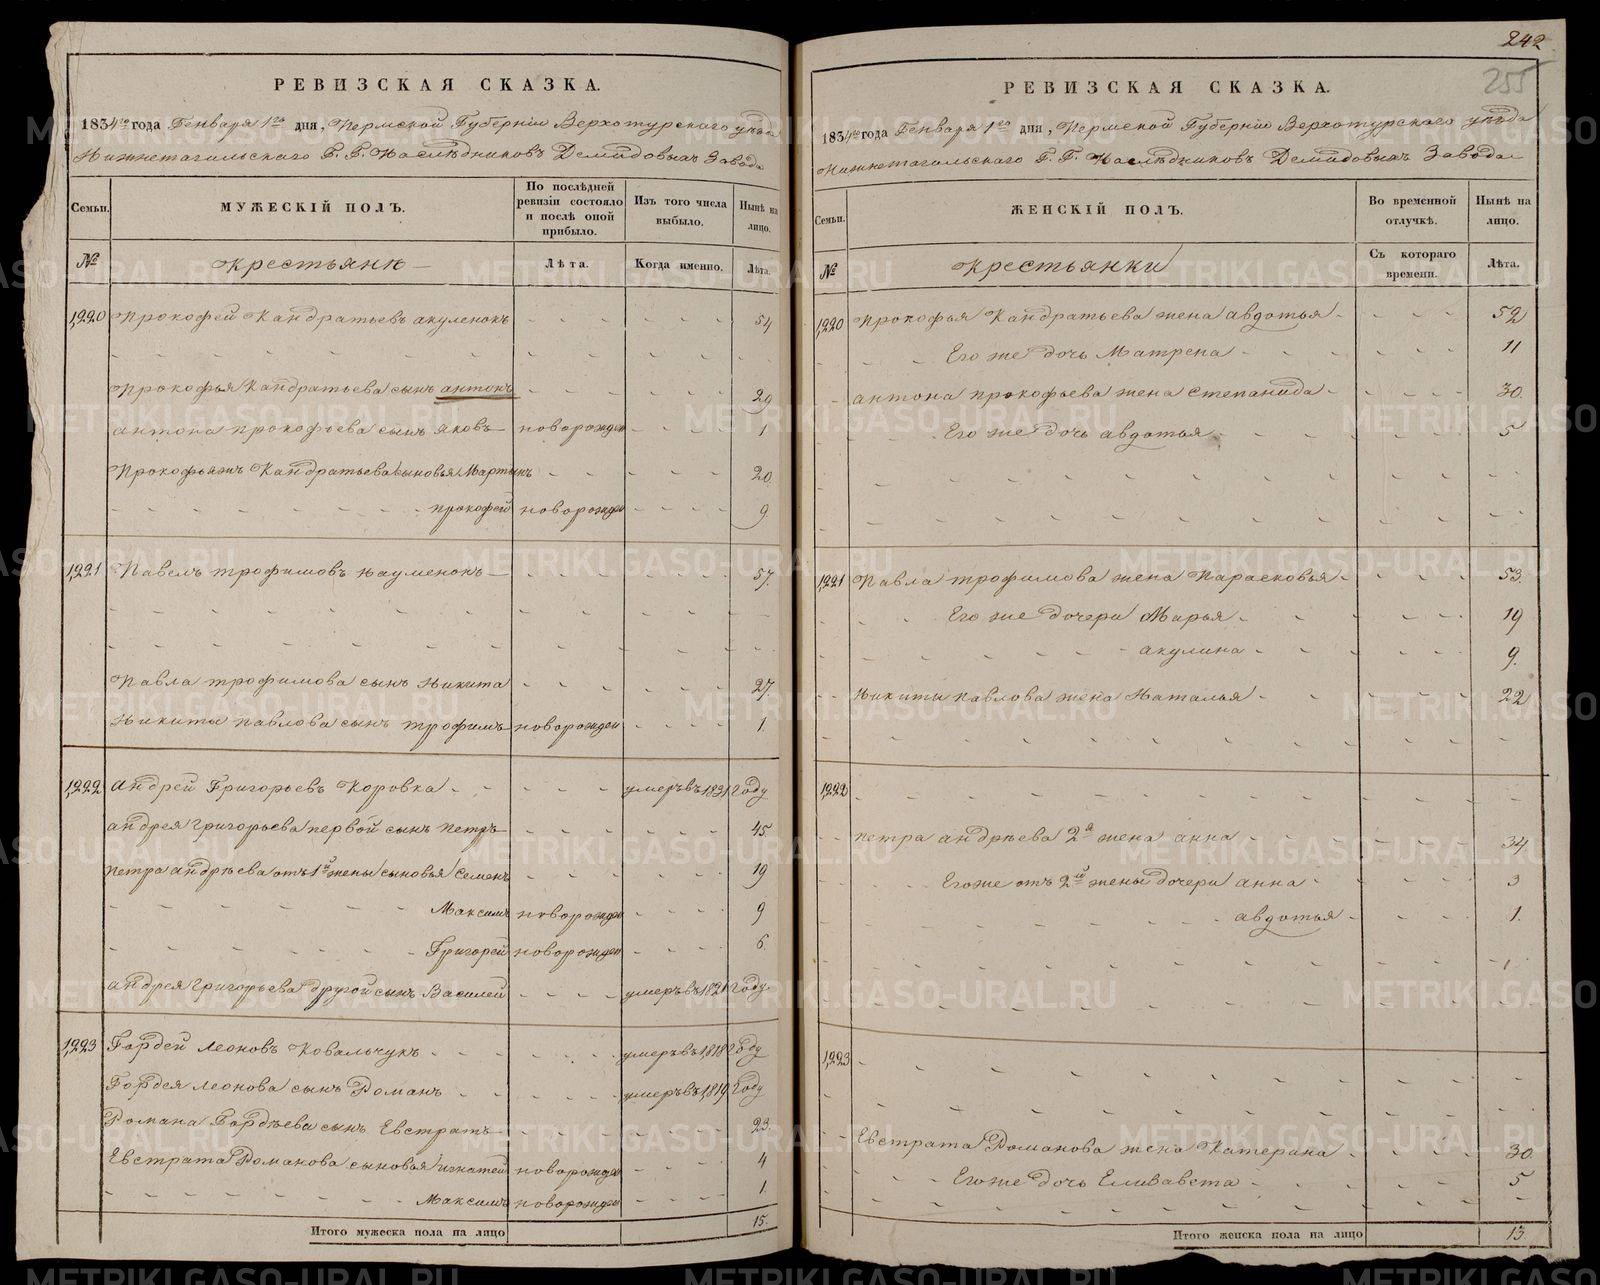 РЕВИЗСКАЯ СКАЗКА.
1834го года Генваря 1го дня, Пермской Губерніи Верхотурского уѣзда
Нижнетагильского Г. Г. Наслѣдниковъ Демидовыхъ Завода
Семьи. МУЖЕСКІЙ ПОЛЪ. По послѣдней ревизіи состояло и послѣ оной прибыло. Изъ того числа выбыло. Нынѣ на лицо.
№ Крестьянѣ Лѣта. Когда именно. Лѣта.
1220 Прокофей Кандратьевъ акуленокъ 54
Прокофья Кандратьева сынъ антонъ 29
антона прокофьева сынъ яковъ новорожден 1
Прокофья жъ Кандратьева сыновья Мартынъ 20
прокофей новорожден 9
1221 Павелъ трофимовъ науменокъ 57
Павла трофимова сынъ никита 27
никиты павлова сынъ трофимъ новорожден 1
1222 андрей Григорьевъ Коровка умеръ въ 1831 году
андрея григорьева первой сынъ петръ 45
петра андрѣева отъ 1й жены сыновья семенъ 19
Максимъ новорожден 9
Григорей новорожден 6
андрея григорьева другой сынъ Василей умеръ въ 1821 году
1223 Гордей леоновъ Ковальчукъ умеръ въ 1818 году
Гордея леонова сынъ Романъ умеръ въ 1819 году
Романа Гордѣева сынъ Евстратъ 23
Евстрата Романова сыновья игнатей новорожден 4
Максимъ новорожден 1
Итого мужеска пола на лицо 15.
242
255
РЕВИЗСКАЯ СКАЗКА.
1834го года Генваря 1го дня, Пермской Губерніи Верхотурского уѣзда
Нижнетагильского Г. Г. Наслѣдниковъ Демидовыхъ Завода
Семьи. ЖЕНСКІЙ ПОЛЪ. Во временной отлучкѣ. Нынѣ на лицо.
№ Крестьянки Съ котораго времени. Лѣта.
1220 Прокофья Кандратьева жена авдотья 52
Его же дочь Матрена 11
антона прокофьева жена степанида 30
Его же дочь авдотья 5
1221 Павла трофимова жена Парасковья 53
Его же дочери Марья 19
акулина 9
никиты павлова жена Наталья 22
1222
петра андрѣева 2я жена анна 34
Его же отъ 2й жены дочери анна 3
авдотья 1
1223
Евстрата Романова жена Катерина 30
Его же дочь Елизавета 5
Итого женска пола на лицо 13.
METRIKI.GASO-URAL.RU